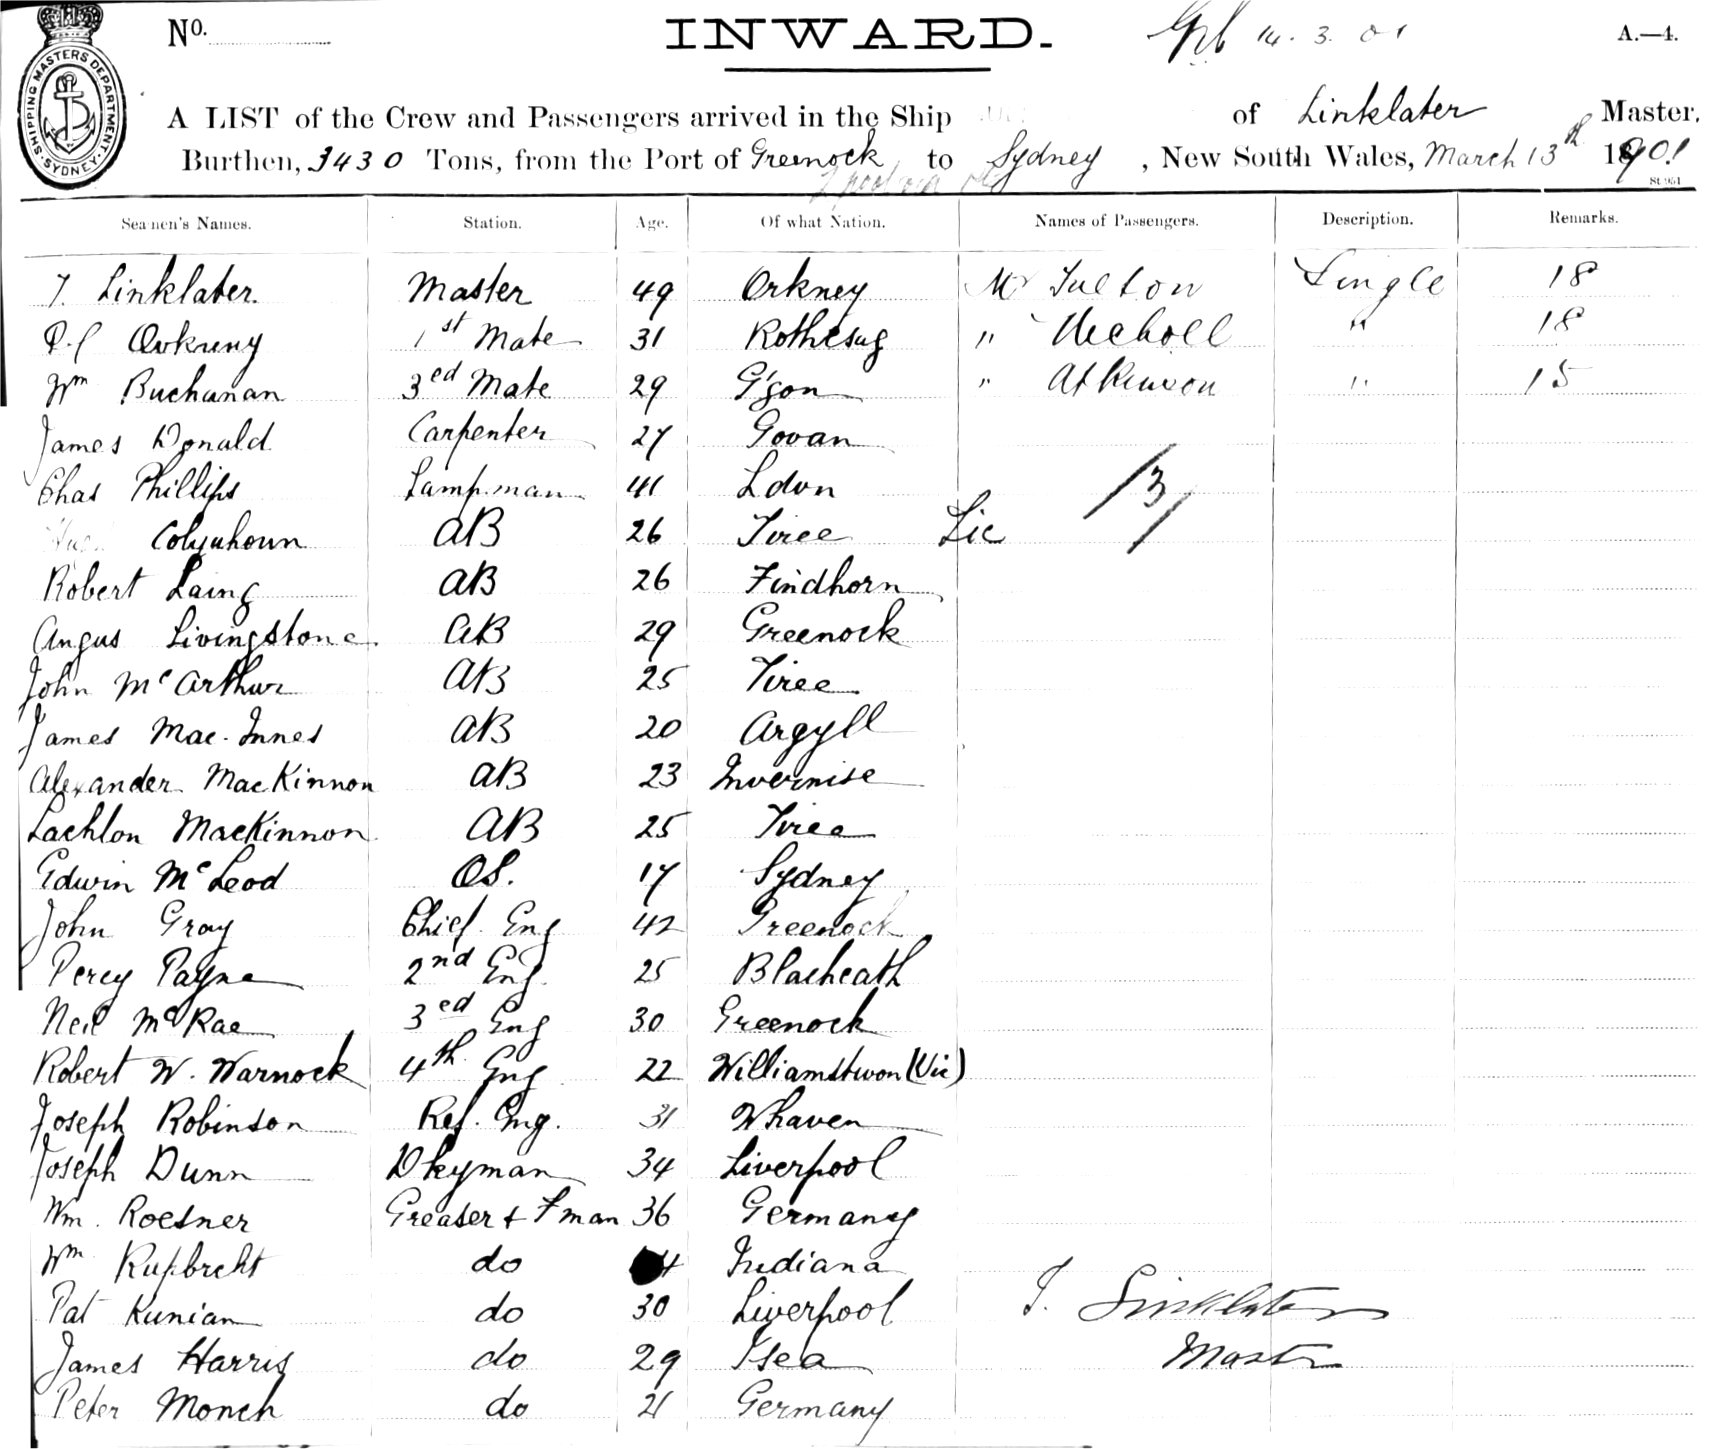 No. INWARD. 14. 3. 01 A.—4.
SHIPPING MASTERS DEPARTMENT SYDNEY
A LIST of the Crew and Passengers arrived in the Ship of Linklater Master,
Burthen, 3430 Tons, from the Port of Greenock to Sydney, New South Wales, March 13th 1901
St 951
Seamen's Names. Station. Age. Of what Nation. Names of Passengers. Description. Remarks.
T. Linklater. Master 49 Orkney Mr Fulton Single 18
Orkney 1st Mate 31 Rothesay " Nicholl " 18
Wm Buchanan 3ed Mate 29 G'gow " Atkinson " 15
James Donald Carpenter 27 Govan
Chas Phillips Lampman 41 Ldon 3
Colquhoun AB 26 Tiree Lic
Robert Laing AB 26 Findhorn
Angus Livingstone AB 29 Greenock
John McArthur AB 25 Tiree
James Mac-Innes AB 20 Argyll
Alexander MacKinnon AB 23 Invernise
Lachlon MacKinnon AB 25 Tiree
Edwin McLeod OS. 17 Sydney
John Gray Chief Eng 42 Greenock
Percy Payne 2nd Eng. 25 Blacheath
Neil McRae 3ed Eng 30 Greenock
Robert W. Warnock 4th Eng 22 Williamstwon (Vic)
Joseph Robinson Ref. Eng. 31 Whaven
Joseph Dunn Dkyman 34 Liverpool
Wm. Roesner Greaser & Fman 36 Germany
Wm Rupbrecht do 4 Indiana
Pat Kunian do 30 Liverpool T. Linklater
James Harris do 29 Master
Peter Monch do 21 Germany